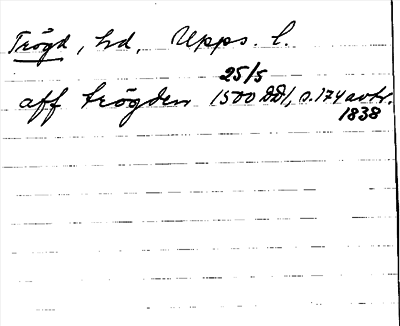 Trögd, hd, Upps. l.
25/5
aff trögden 1500 DD1, s. 174 avtr.
1838